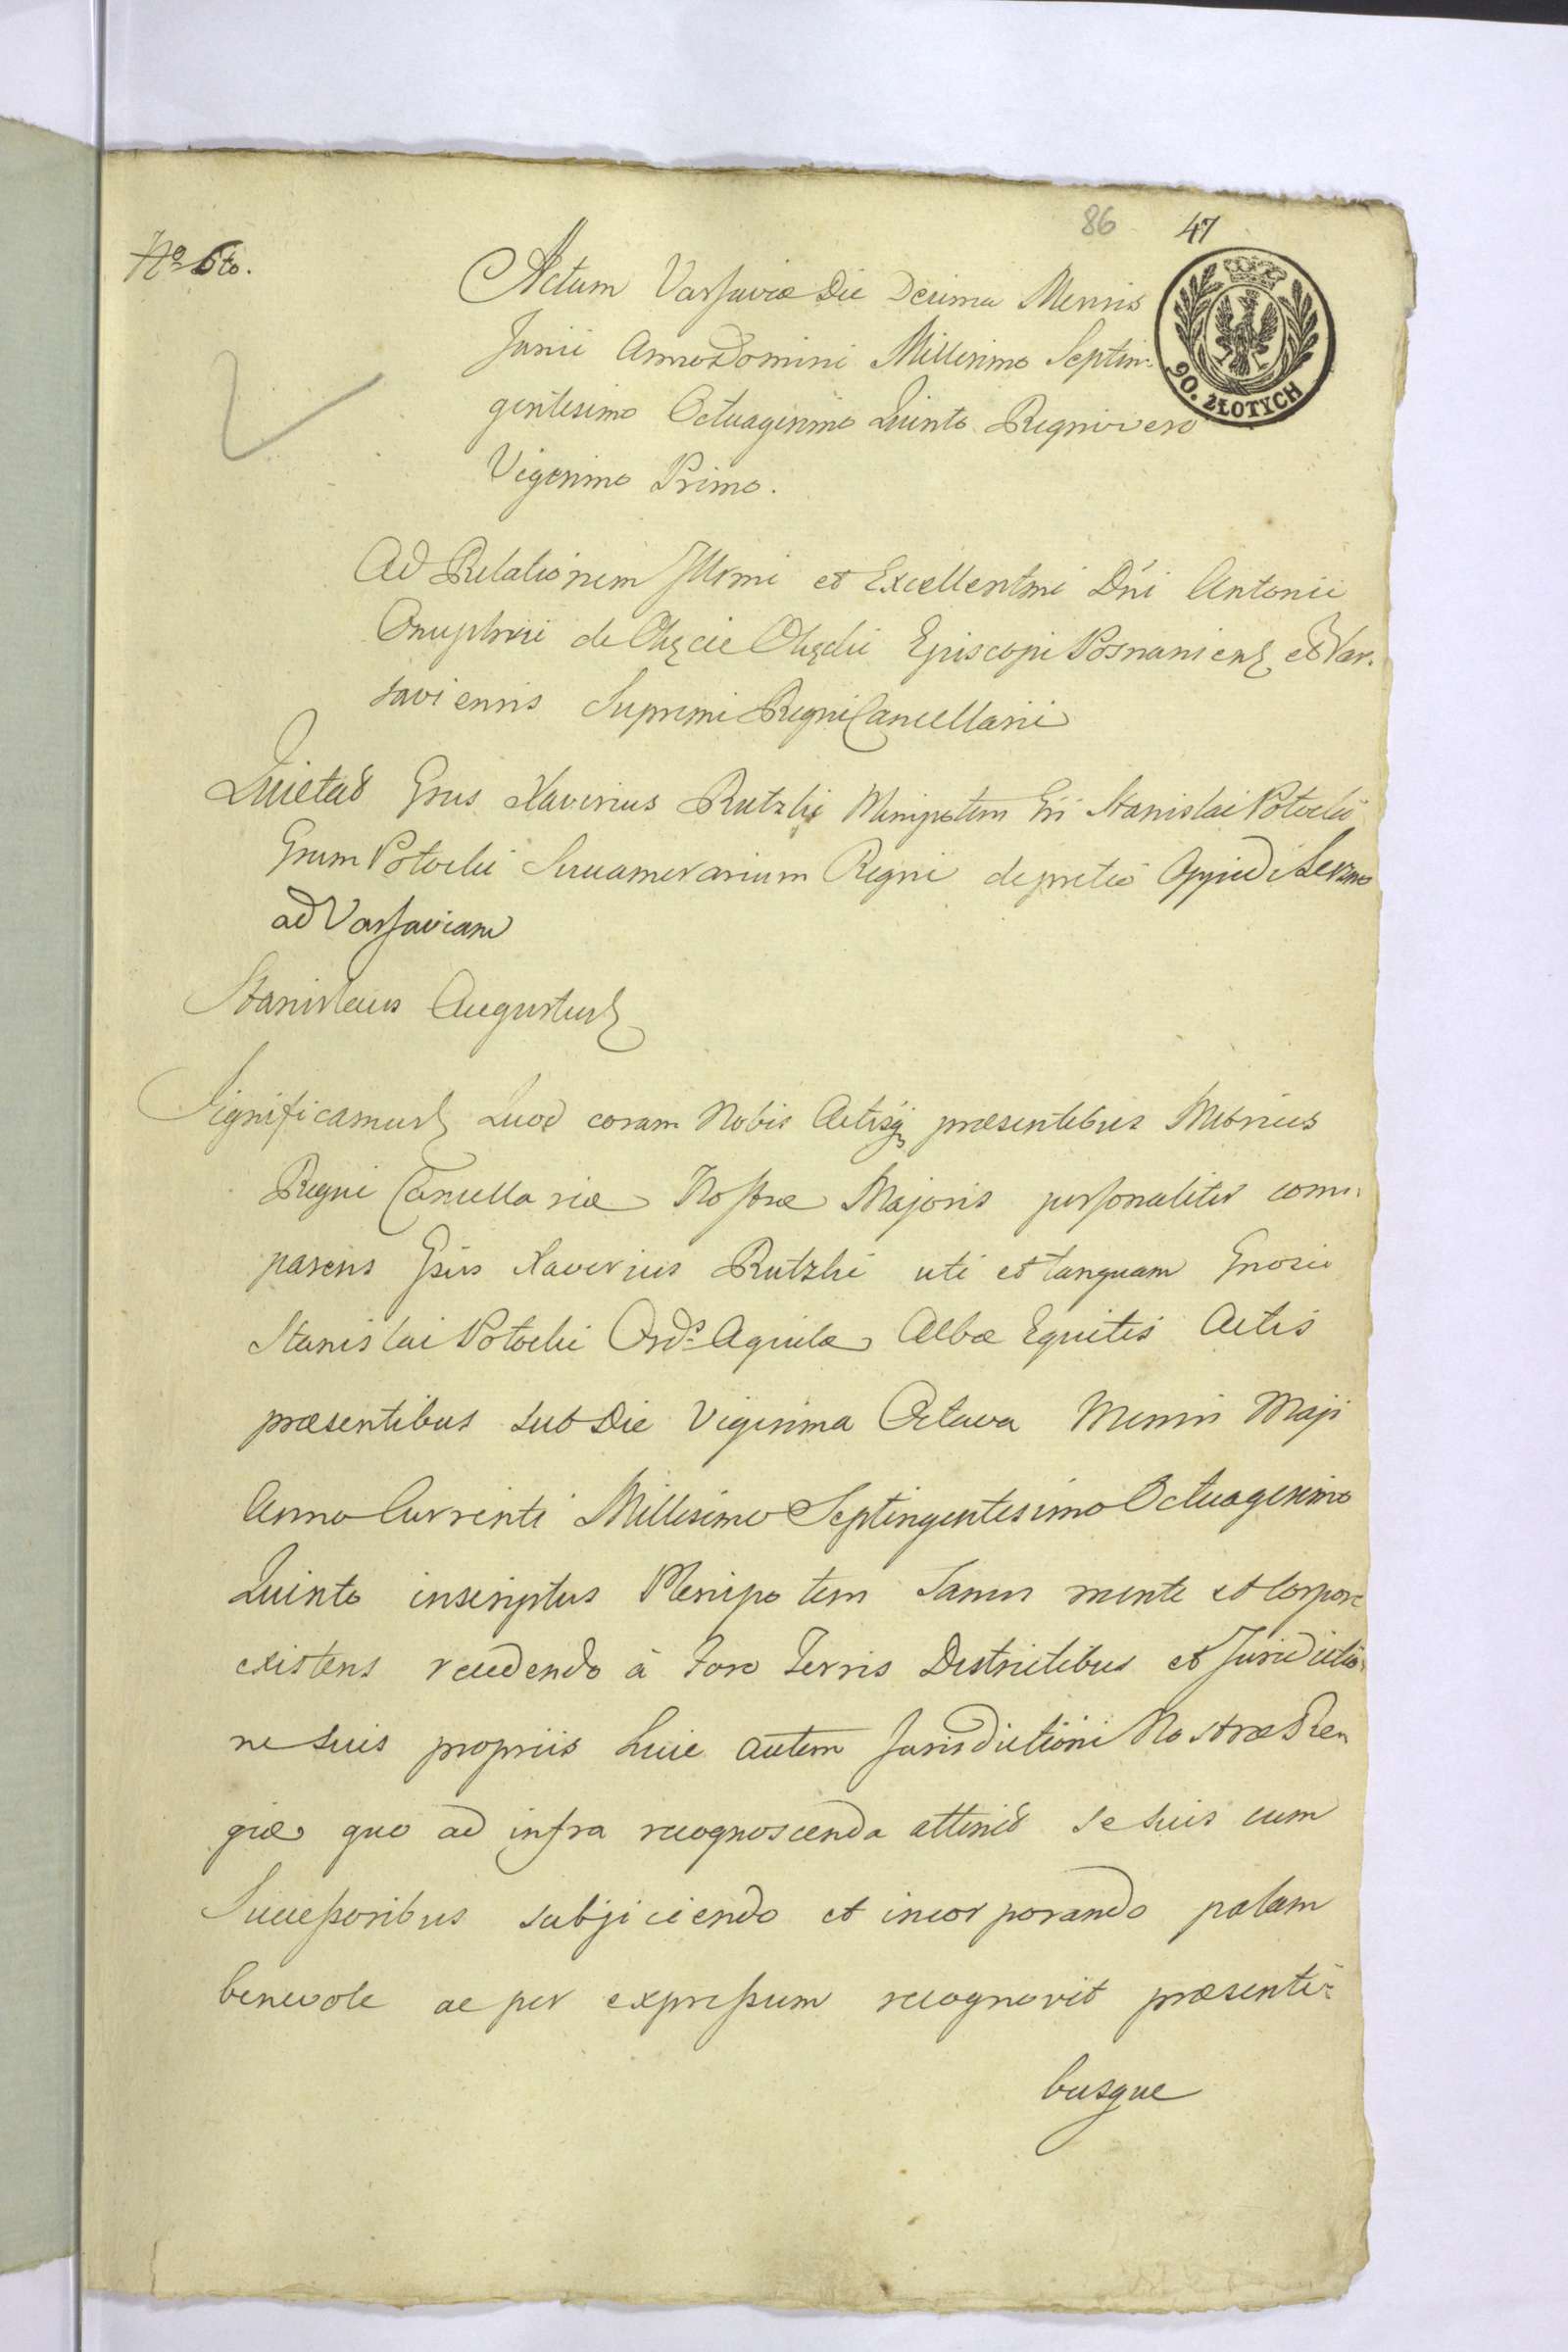 86 47
No 6to.
Actum Varsaviæ Die Decima Mensis
Junii Anno Domini Millesimo Septin-
gentesimo Octuagesimo Quinto Regni vero
Vigesimo Primo.
90. ZŁOTYCH
Ad Relationem Illrmi et Excellentmi Dni Antonii
Onuphrii de Okęcie Okęcki Episcopi Posnaniens et Var-
saviensis Supremi Regni Cancellarii
Quietat Gnus Xaverius Rutzki Plenipotens Gsi Stanislai Potocki
Gnum Potocki Succamerarium Regni de pretio Oppidi
ad Varsaviam
Stanislaus Augustus
Significamus Quod coram Nobis Actisq præsentibus Metrices
Regni Cancellariæ Nostræ Majoris personaliter com-
parens Gsus Xaverius Rutzki uti et tanquam Gnosii
Stanislai Potocki Ords Aquilæ Albæ Equitis Actis
præsentibus sub Die Vigesima Octava Mensis Maji
Anno Currenti Millesimo Septingentesimo Octuagesimo
Quinto inscriptus Plenipotens Sanus mente et Corpore
existens recedendo à Foro Terris Districtibus et Jurisdictio-
ne suis propriis huic autem Jurisdictioni Nostræ Re-
giæ quo ad infra recognoscenda attinet se suis cum
Successoribus subjiciendo et incorporando palam
benevole ac per expressum recognovit præsenti-
busque